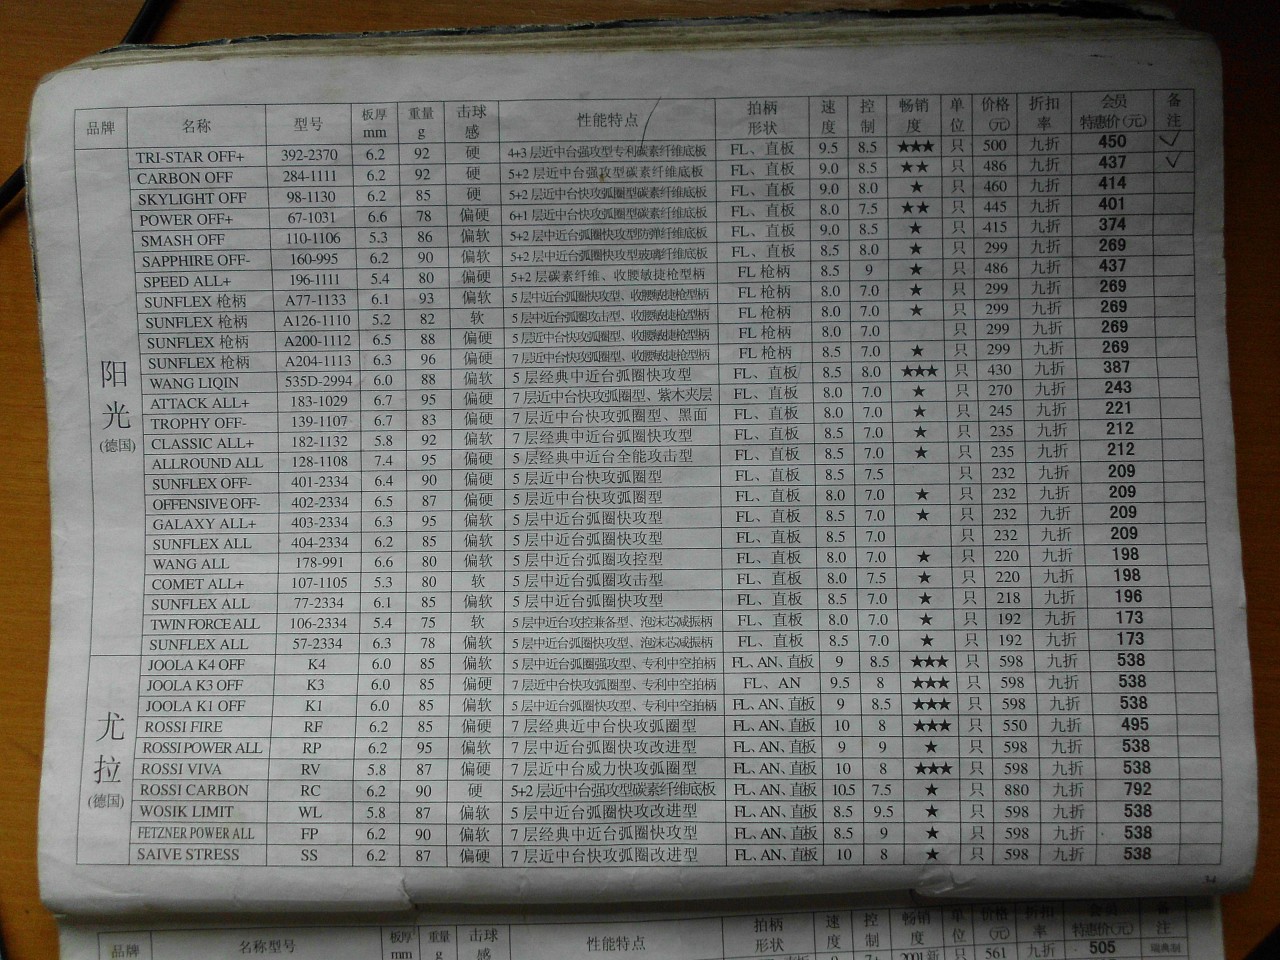 品牌 名称 型号 板厚mm 重量g 击球感 性能特点 拍柄形状 速度 控制 畅销度 单位 价格(元) 折扣率 会员特惠价(元) 备注
阳光(德国)
TRI-STAR OFF+ 392-2370 6.2 92 硬 4+3层近中台强攻型专利碳素纤维底板 FL、直板 9.5 8.5 ★★★ 只 500 九折 450 ✓
CARBON OFF 284-1111 6.2 92 硬 5+2层近中台强攻型碳素纤维底板 FL、直板 9.0 8.5 ★★ 只 486 九折 437 ✓
SKYLIGHT OFF 98-1130 6.2 85 硬 5+2层近中台快攻弧圈型碳素纤维底板 FL、直板 9.0 8.0 ★ 只 460 九折 414
POWER OFF+ 67-1031 6.6 78 偏硬 6+1层近中台快攻弧圈型碳素纤维底板 FL、直板 8.0 7.5 ★★ 只 445 九折 401
SMASH OFF 110-1106 5.3 86 偏软 5+2层中近台弧圈快攻型防弹纤维底板 FL、直板 9.0 8.5 ★ 只 415 九折 374
SAPPHIRE OFF- 160-995 6.2 90 偏软 5+2层中近台弧圈快攻型玻璃纤维底板 FL、直板 8.5 8.0 ★ 只 299 九折 269
SPEED ALL+ 196-1111 5.4 80 偏硬 5+2层碳素纤维、收腰敏捷枪型柄 FL枪柄 8.5 9 ★ 只 486 九折 437
SUNFLEX 枪柄 A77-1133 6.1 93 偏软 5层中近台弧圈快攻型、收腰敏捷枪型柄 FL枪柄 8.0 7.0 ★ 只 299 九折 269
SUNFLEX 枪柄 A126-1110 5.2 82 软 5层中近台弧圈攻击型、收腰敏捷枪型柄 FL枪柄 8.0 7.0 ★ 只 299 九折 269
SUNFLEX 枪柄 A200-1112 6.5 88 偏硬 5层近中台快攻弧圈型、收腰敏捷枪型柄 FL枪柄 8.0 7.0 只 299 九折 269
SUNFLEX 枪柄 A204-1113 6.3 96 偏硬 7层近中台快攻弧圈型、收腰敏捷枪型柄 FL枪柄 8.5 7.0 ★ 只 299 九折 269
WANG LIQIN 535D-2994 6.0 88 偏软 5层经典中近台弧圈快攻型 FL、直板 8.5 8.0 ★★★ 只 430 九折 387
ATTACK ALL+ 183-1029 6.7 95 偏硬 7层近中台快攻弧圈型、紫木夹层 FL、直板 8.0 7.0 ★ 只 270 九折 243
TROPHY OFF- 139-1107 6.7 83 偏硬 7层近中台快攻弧圈型、黑面 FL、直板 8.0 7.0 ★ 只 245 九折 221
CLASSIC ALL+ 182-1132 5.8 92 偏软 7层经典中近台弧圈快攻型 FL、直板 8.5 7.0 ★ 只 235 九折 212
ALLROUND ALL 128-1108 7.4 95 偏硬 5层经典中近台全能攻击型 FL、直板 8.0 7.0 ★ 只 235 九折 212
SUNFLEX OFF- 401-2334 6.4 90 偏硬 5层近中台快攻弧圈型 FL、直板 8.5 7.5 只 232 九折 209
OFFENSIVE OFF- 402-2334 6.5 87 偏硬 5层近中台快攻弧圈型 FL、直板 8.0 7.0 ★ 只 232 九折 209
GALAXY ALL+ 403-2334 6.3 95 偏软 5层中近台弧圈快攻型 FL、直板 8.5 7.0 ★ 只 232 九折 209
SUNFLEX ALL 404-2334 6.2 85 偏软 5层中近台弧圈快攻型 FL、直板 8.5 7.0 只 232 九折 209
WANG ALL 178-991 6.6 80 偏软 5层中近台弧圈攻控型 FL、直板 8.0 7.0 ★ 只 220 九折 198
COMET ALL+ 107-1105 5.3 80 软 5层中近台弧圈攻击型 FL、直板 8.0 7.5 ★ 只 220 九折 198
SUNFLEX ALL 77-2334 6.1 85 偏软 5层中近台弧圈快攻型 FL、直板 8.5 7.0 ★ 只 218 九折 196
TWIN FORCE ALL 106-2334 5.4 75 软 5层中近台攻控兼备型、泡沫芯减振柄 FL、直板 8.0 7.0 ★ 只 192 九折 173
SUNFLEX ALL 57-2334 6.3 78 偏软 5层中近台弧圈快攻型、泡沫芯减振柄 FL、直板 8.5 7.0 ★ 只 192 九折 173
尤拉(德国)
JOOLA K4 OFF K4 6.0 85 偏软 5层中近台弧圈强攻型、专利中空拍柄 FL、AN、直板 9 8.5 ★★★ 只 598 九折 538
JOOLA K3 OFF K3 6.0 85 偏硬 7层近中台快攻弧圈型、专利中空拍柄 FL、AN 9.5 8 ★★★ 只 598 九折 538
JOOLA K1 OFF K1 6.0 85 偏软 5层中近台弧圈快攻型、专利中空拍柄 FL、AN、直板 9 8.5 ★★★ 只 598 九折 538
ROSSI FIRE RF 6.2 85 偏硬 7层经典近中台快攻弧圈型 FL、AN、直板 10 8 ★★★ 只 550 九折 495
ROSSI POWER ALL RP 6.2 95 偏软 7层中近台弧圈快攻改进型 FL、AN、直板 9 9 ★ 只 598 九折 538
ROSSI VIVA RV 5.8 87 偏硬 7层近中台威力快攻弧圈型 FL、AN、直板 10 8 ★★★ 只 598 九折 538
ROSSI CARBON RC 6.2 90 硬 5+2层近中台强攻型碳素纤维底板 FL、AN、直板 10.5 7.5 ★ 只 880 九折 792
WOSIK LIMIT WL 5.8 87 偏软 5层中近台弧圈快攻改进型 FL、AN、直板 8.5 9.5 ★ 只 598 九折 538
FETZNER POWER ALL FP 6.2 90 偏软 7层经典中近台弧圈快攻型 FL、AN、直板 8.5 9 ★ 只 598 九折 538
SAIVE STRESS SS 6.2 87 偏硬 7层近中台快攻弧圈改进型 FL、AN、直板 10 8 ★ 只 598 九折 538
品牌 名称型号 板厚mm 重量g 击球感 性能特点 拍柄形状 速度 控制 畅销度 单位 价格(元) 折扣率 会员特惠价(元) 备注
只 561 九折 505